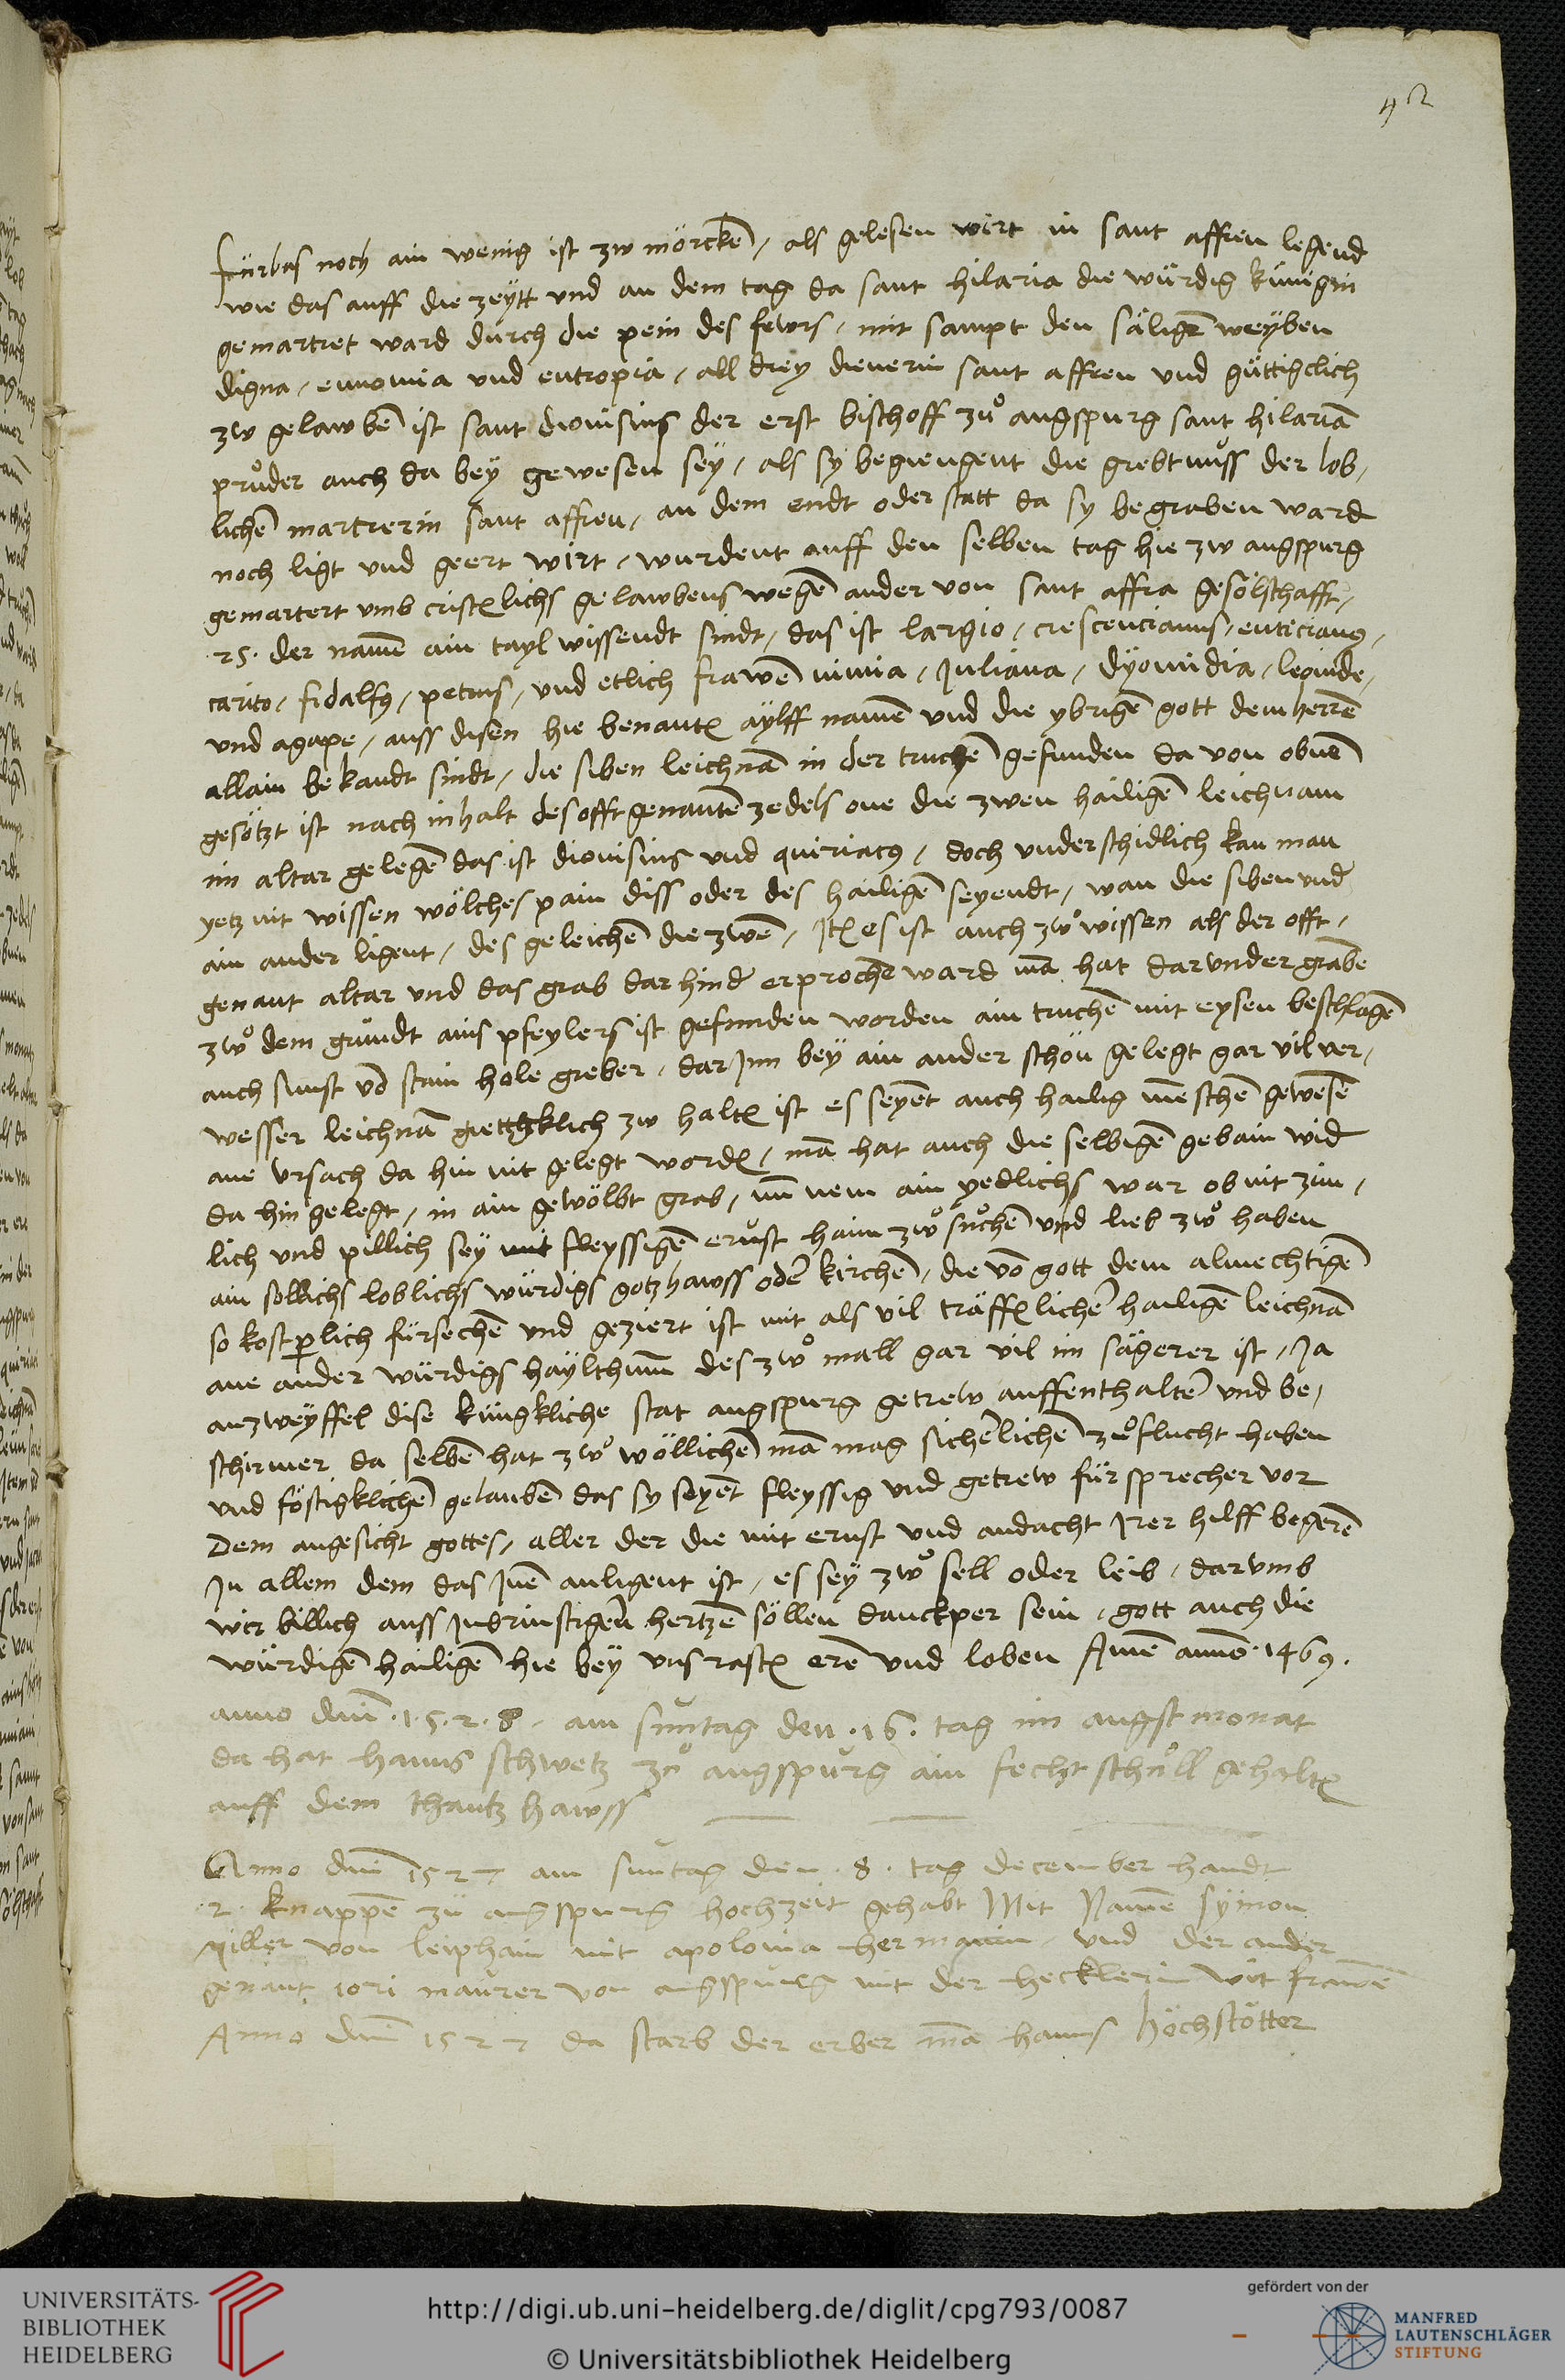 42
fürbas noch ain wenig ist zw mörckē / als gelesen wirt in sant affren legend
wie das auff die zeÿtt und an dem tag da sant hilaria die würdig künigin
gemartret ward durch die pein des fewrs / mit sampt den säligē weÿben
digna / eunomia und eutropia / all dreÿ dienerin sant affren und güttigclich
zw gelawbē ist sant dionisius der erst bischoff zuͦ augspurg sant hilariā
pruͦder auch da beÿ gewesen seÿ / als sy begiengent die grebtnuͦss der lob /
lichē martrerin sant affren / an dem endt oder statt da sy begraben ward
noch ligt und geert wirt / wurdent auff den selben tag hie zw augspurg
gemartert umb cristlichs gelawbens wegē ander von sant affra gesölschafft /
25 . der namē ain tayl wissendt sindt / das ist largio / crescencianus / euticianus /
carito / fidalfus / petrus / und etlich frawē nimia / Juliana / dÿomidia / leonide /
und agape / auss disen hie benantē aÿlff namē und die ybrigē gott dem herrē
allain bekandt sindt / die siben leichnā in der truchē gefunden da von obnē
gesötzt ist nach inhalt des offtgenantē zedels one die zwen hailigē leichnam
im altar gelegē das ist dionisius und quiriacus / doch underschidlich kan man
yetz nit wissen wölches pain diss oder des hailigē seyendt / wan die siben under
ain ander ligent / des geleichē die zwē / Itē es ist auch zwͦ wissen als der offt /
genant altar und das grab dar hindē erprochē ward mā hat dar under grabē
zwͦ dem grundt ains pfeylers ist gefunden worden ain truchē mit eysen beschlagē
auch sunst vō stain hole greber / dar Inn beÿ ain ander schön gelegt gar vil ver /
wesser leichnā giettigklich zw haltē ist es seyent auch hailig mēschē gewesē
ane ursach da hin nit gelegt wordē / mā hat auch die selbigē gebain wid
da hin gelegt / in ain gewölbt grab / nun nem ain yedlichs war ob nit zim /
lich und pillich seÿ mit fleyssigē ernst haim zwͦ suͦchē und lieb zwͦ haben
ain sollichs loblichs würdigs gotzhawss oder kirchē / die vō gott dem almechtigē
so kostperlich fürsechē und geziert ist mit als vil träfflichē hailigē leichnā
ane ander würdigs haÿlthum des zwͦ mall gar vil im sägerer ist / Ja
anzweÿffel dise küngkliche stat augspurg getrew auffenthaltē und be /
schirmer da selbē hat zwͦ wöllichē mā mag sicherlichē zuͦflucht haben
und föstigklichē gelaubē das sy seyent fleyssig und getrew fürsprecher vor
Dem angesicht gottes / aller der die mit ernst und andacht Irer hilff begerē
In allem dem das Inē anligent ist / es seÿ zwͦ sell oder leib / darumb
wir billich auss Inbrinstigem hertzē söllen danckper sein / gott auch die
würdigē hailigē hie beÿ uns rastē erē und loben Amē annō . 1469 .
anno dm̄ . 1 . 5 . 2 . 8 . am suntag den . 16 . tag im augstmonat
da hat hanns schwetz zuͦ augspurg ain fechtschuͦll gehaltē
auff dem thantzhawss
Anno dm̄ 1527 am suntag den . 8 . tag december handt
. 2 . knappē zu augspurg hochzeit gehabt Mit Namē sÿmon
Miller von leiphain mit apolonia hermanin / und der ander
genant iori maurer von augspurg mit der hecklerin wit frawē
Anno dm̄ 1527 da starb der erber mā hanns höchstötter
UNIVERSITÄTS-
BIBLIOTHEK
HEIDELBERG
http://digi.ub.uni-heidelberg.de/diglit/cpg793/0087
© Universitätsbibliothek Heidelberg
gefördert von der
MANFRED
LAUTENSCHLÄGER
STIFTUNG